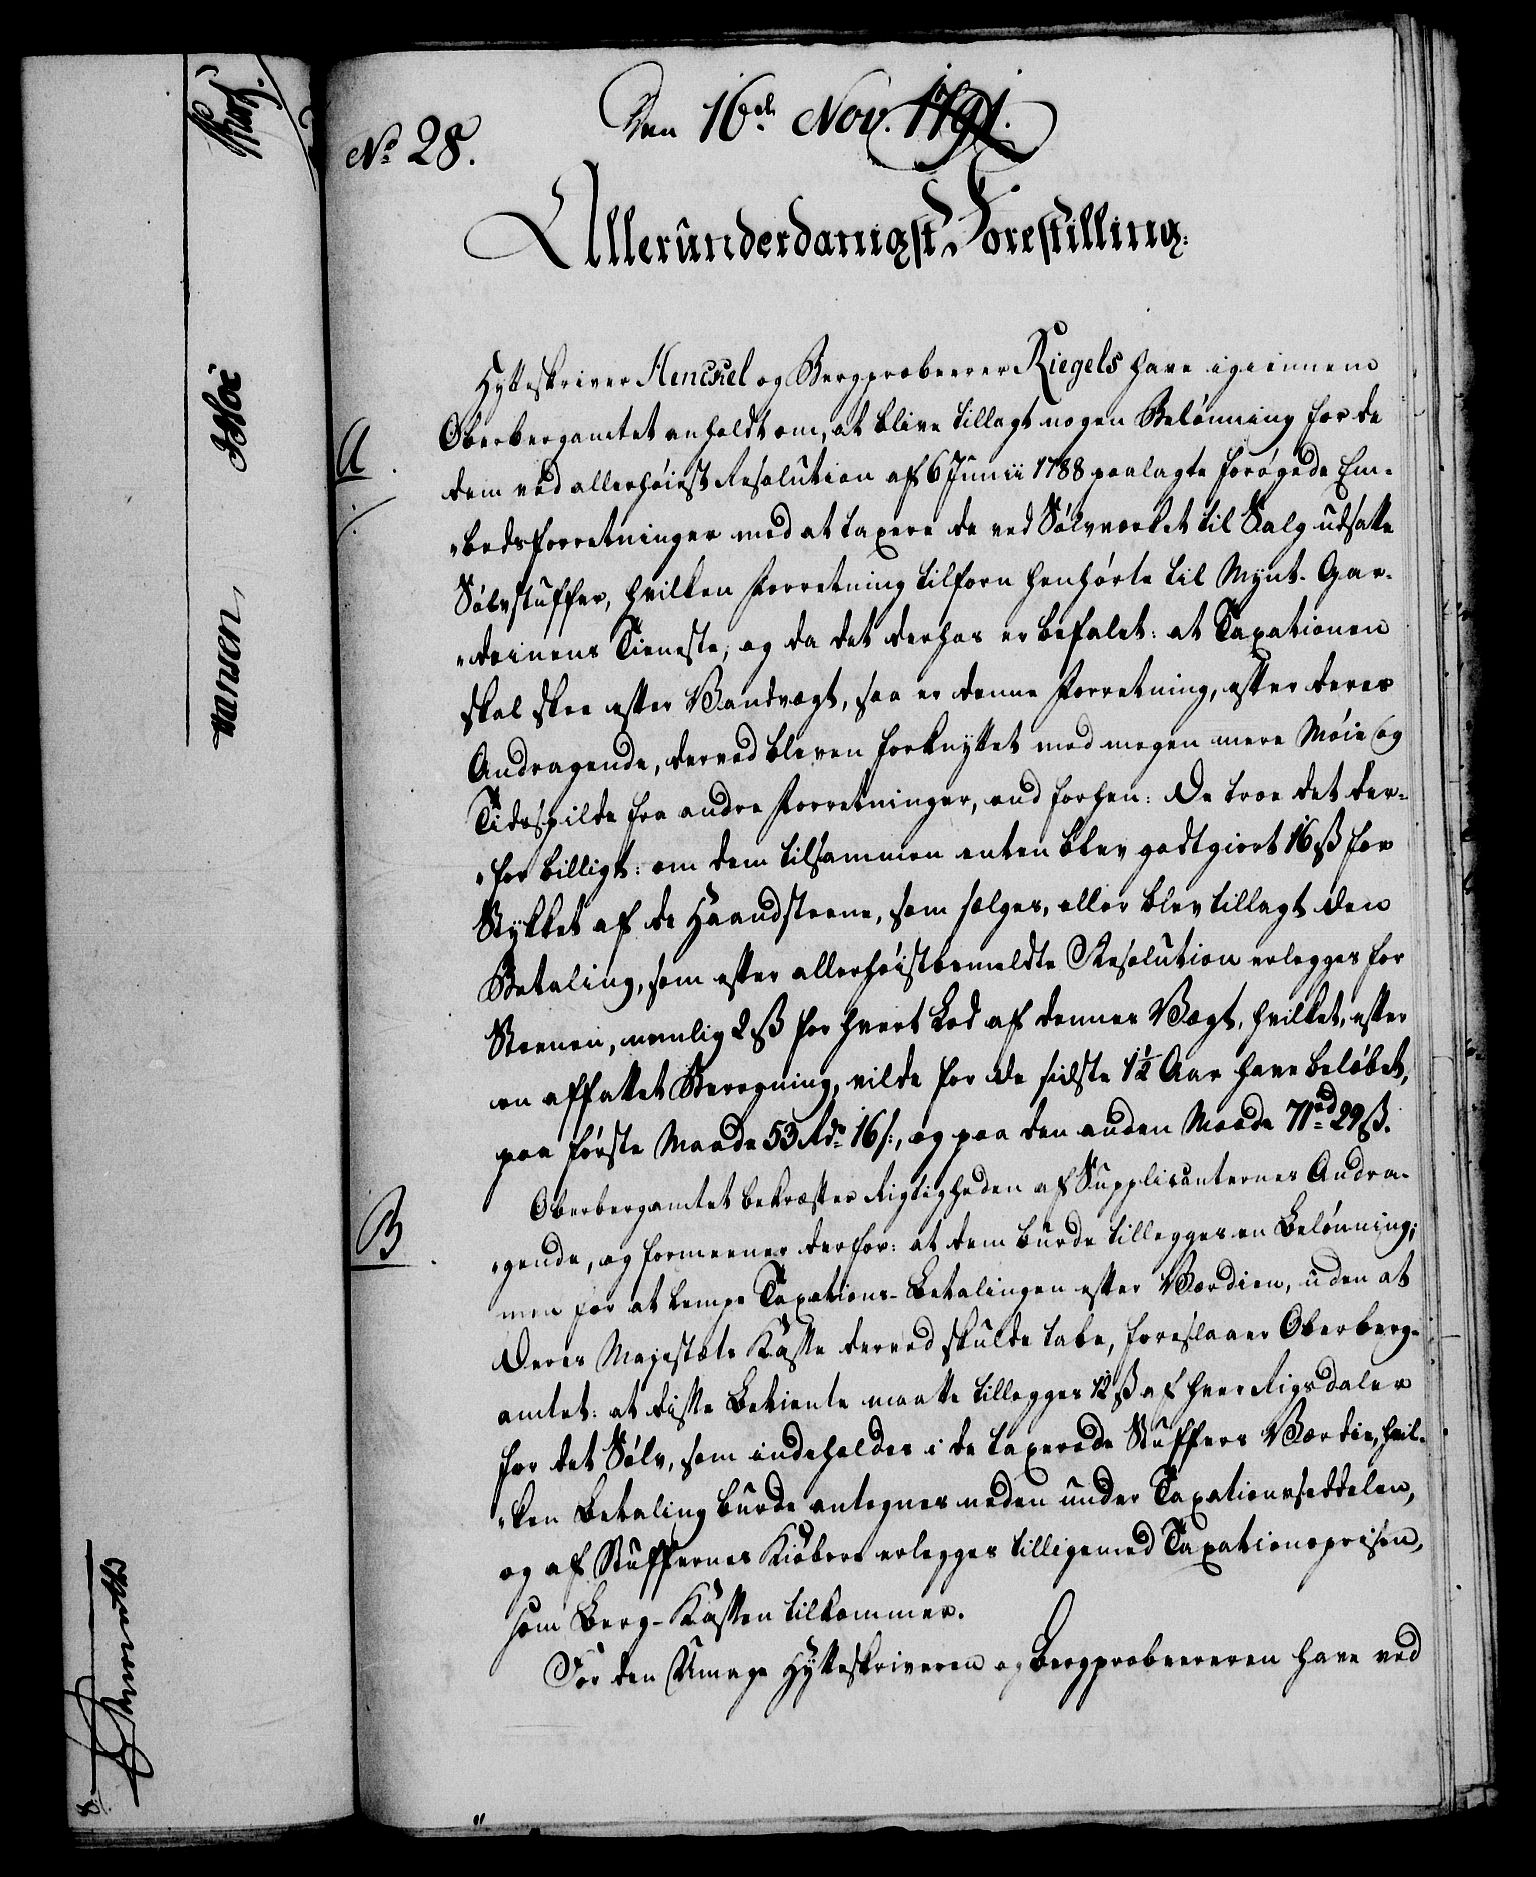 No 28.
Den 16de Nov. 1791.
Allerunderdanigst Forestilling:
Hytteskriver Henckel og Bergprobeerer Riegels have igiennem
A
Oberbergamtet anholdt om, at blive tillagt nogen Belønning for de
dem ved allerhøiest Resolution af 6 Junii 1788 paalagte forøgede Em-
„bedsforretninger med at taxere de ved Sølvverket til Salg udsatte
Sølvstuffer, hvilken Forretning tilforn henhørte til Mynt-Gar-
„deinens Tieneste; og da det derhos er befalet: at Taxationen
skal skee efter Vandvægt, saa er denne Forretning, efter deres
Andragende, derved bleven forknyttet med megen mere Møie og
Tidsspilde fra andre Forretninger, end forhen: De troe det der-
„for billigt: om dem tilsammen enten blev godtgiort 16 ß for
Stykket af de Haandsteene, som sælges, eller blev tillagt den
Betaling, som efter allerhøistbemeldte Resolution erlegges for
Steenen, nemlig 2 ß for hvert Lod af dennes Vægt, hvilket, efter
en affattet Beregning, vilde for de sidste 1½ Aar have beløbet,
paa første Maade 53 Rdr 16 ß, og paa den anden Maade 71rd 29 ß.
B
Oberbergamtet bekræfter Rigtigheden af Supplicanternes Andra-
„gende, og formeener derfor: at dem burde tillegges en Belønning;
men for at lempe Taxations-Betalingen efter Værdien, uden at
Deres Majestæts Kasse derved skulde tabe, foreslaaer Oberberg-
amtet: at disse Betiente maatte tillegges 12 ß af hver Rigsdaler
for det Sølv, som indeholdes i de taxerede Stuffers Værdie, hvil-
„ken Betaling burde antegnes neden under Taxationsseddelen,
og af Stuffernes Kiøbere erlegges tilligemed Taxationsprisen,
som Berg-Kassen tilkommer.
For den Umage Hytteskriveren og Bergprobeereren have ved